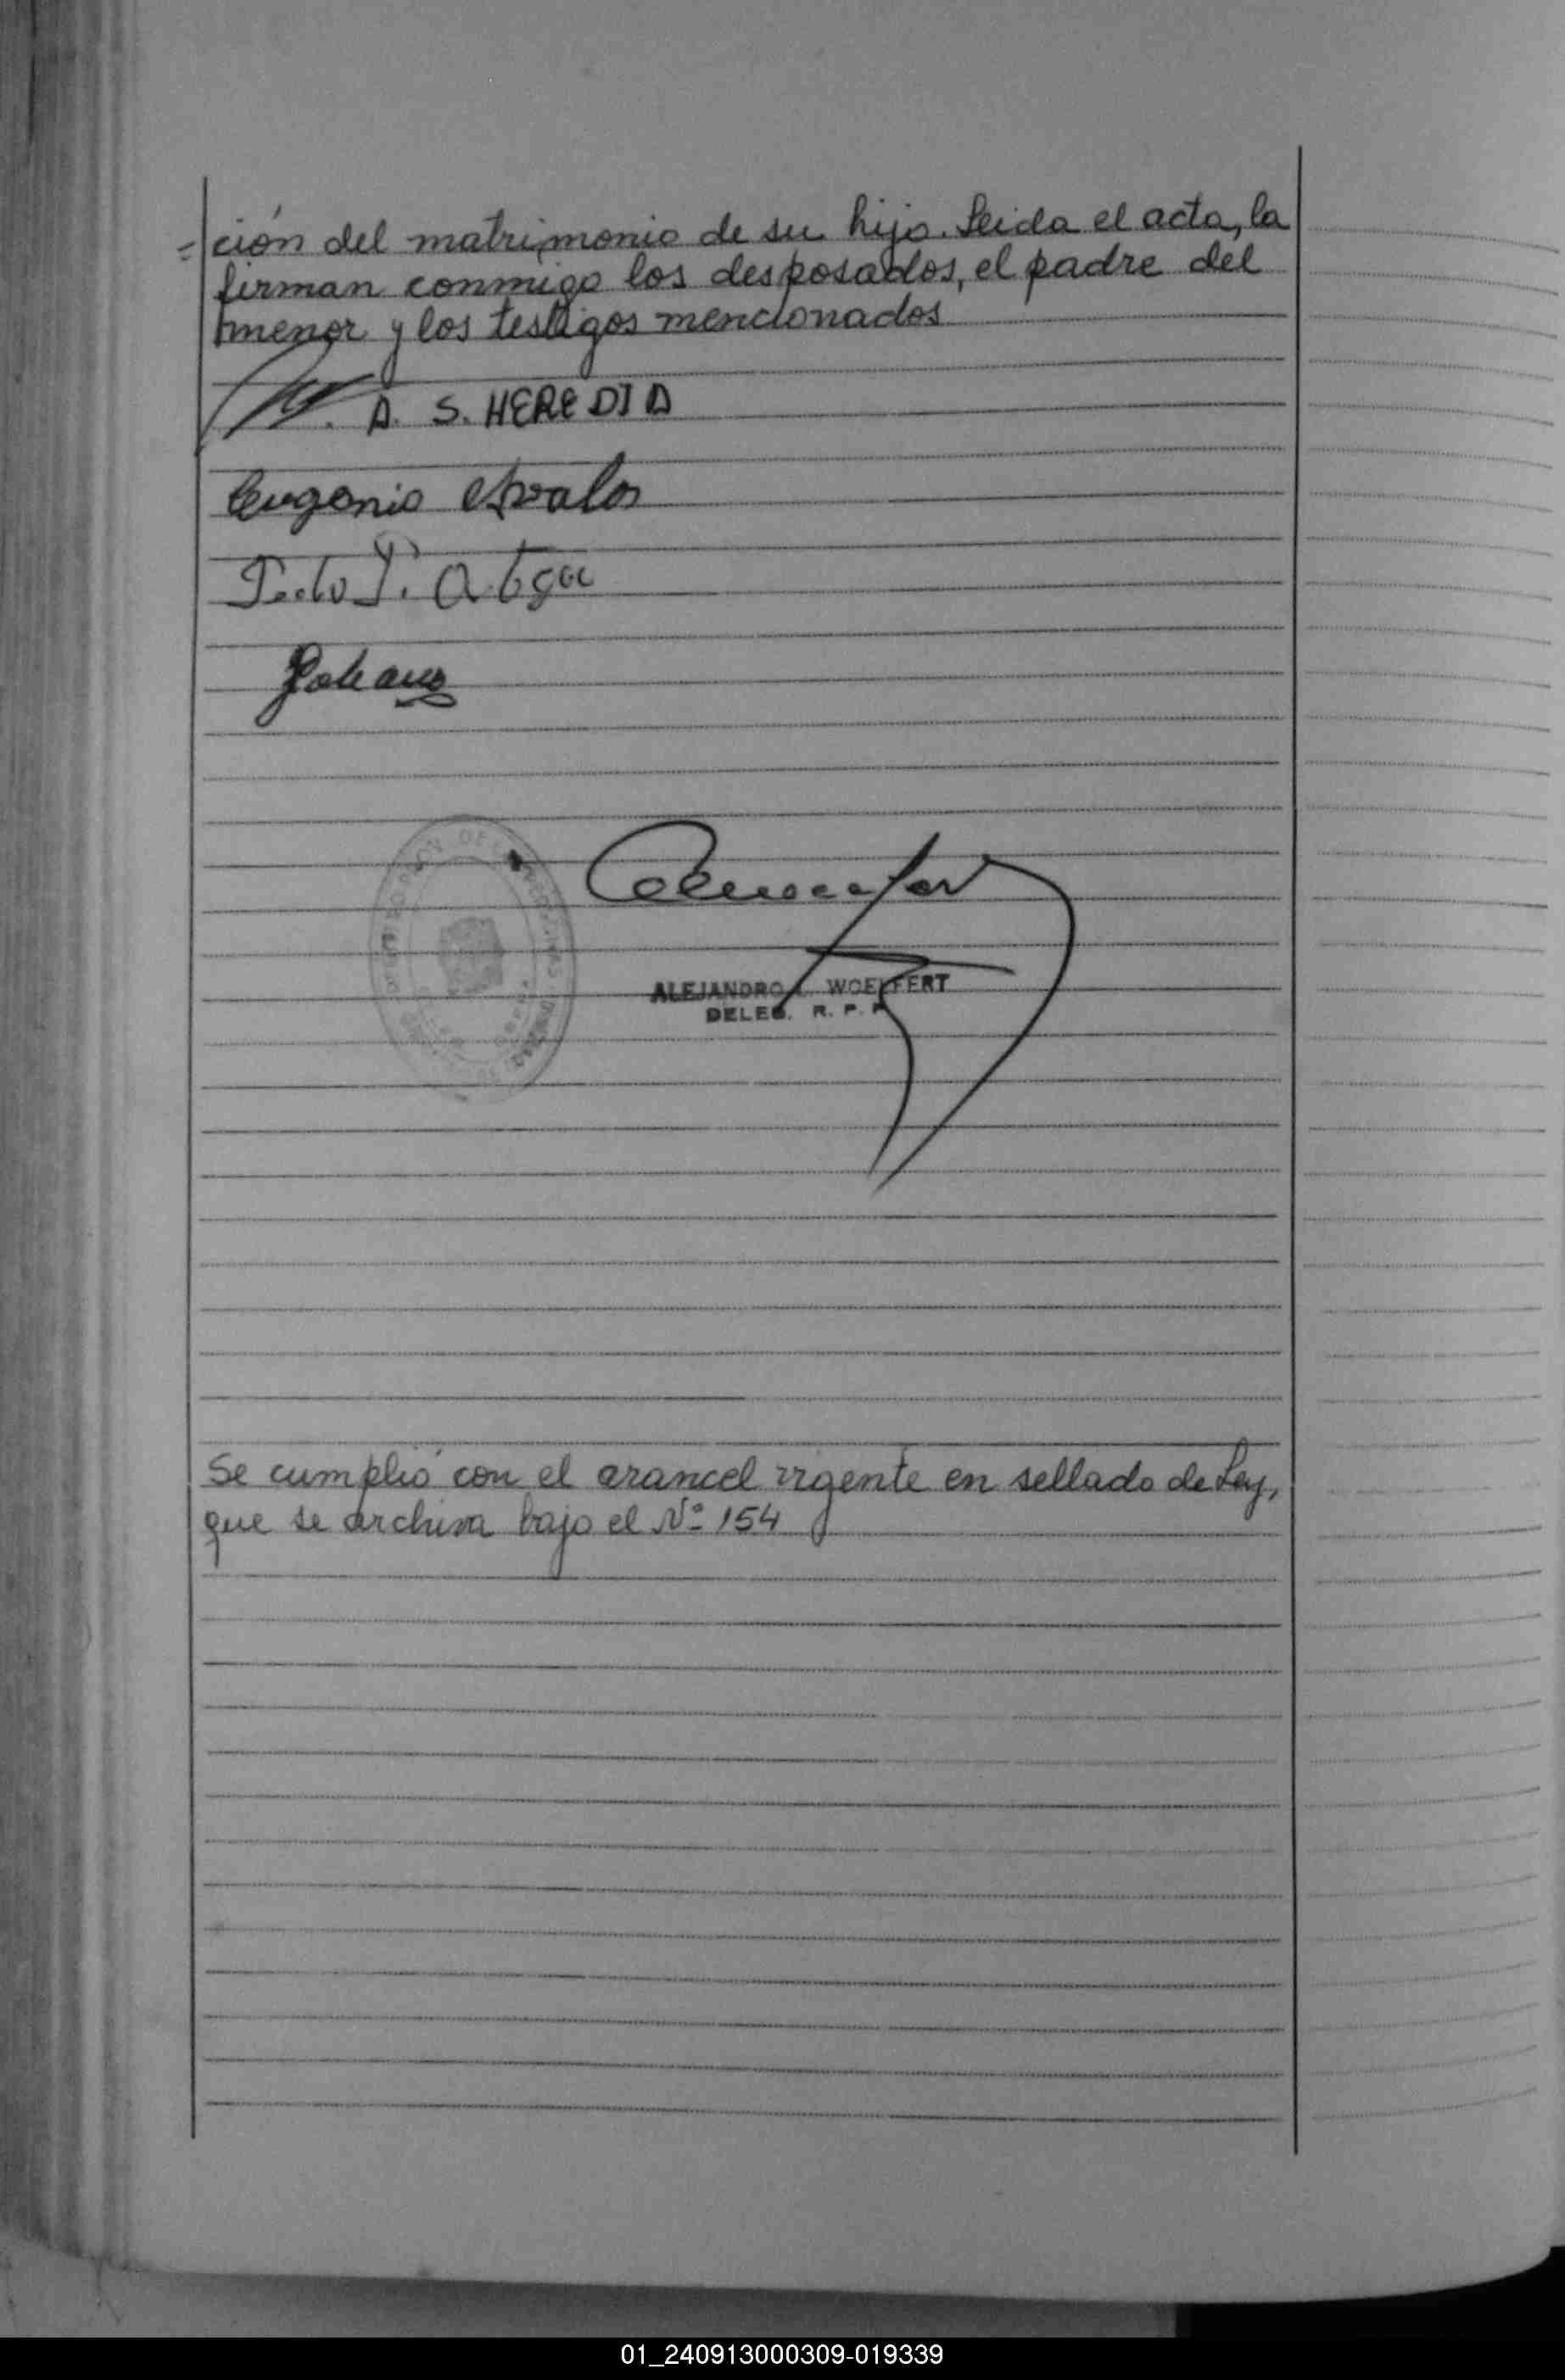 =ción del matrimonio de su hijo. Leida el acta, la
firman conmigo los desposados, el padre del
menor y los testigos mencionados
A. S. HEREDIA
Eugenio Avalos
ALEJANDRO WOELFERT
DELEG. R. P. P
Se cumplió con el arancel vigente en sellado de Ley,
que se archiva bajo el Nº 154
01_240913000309-019339